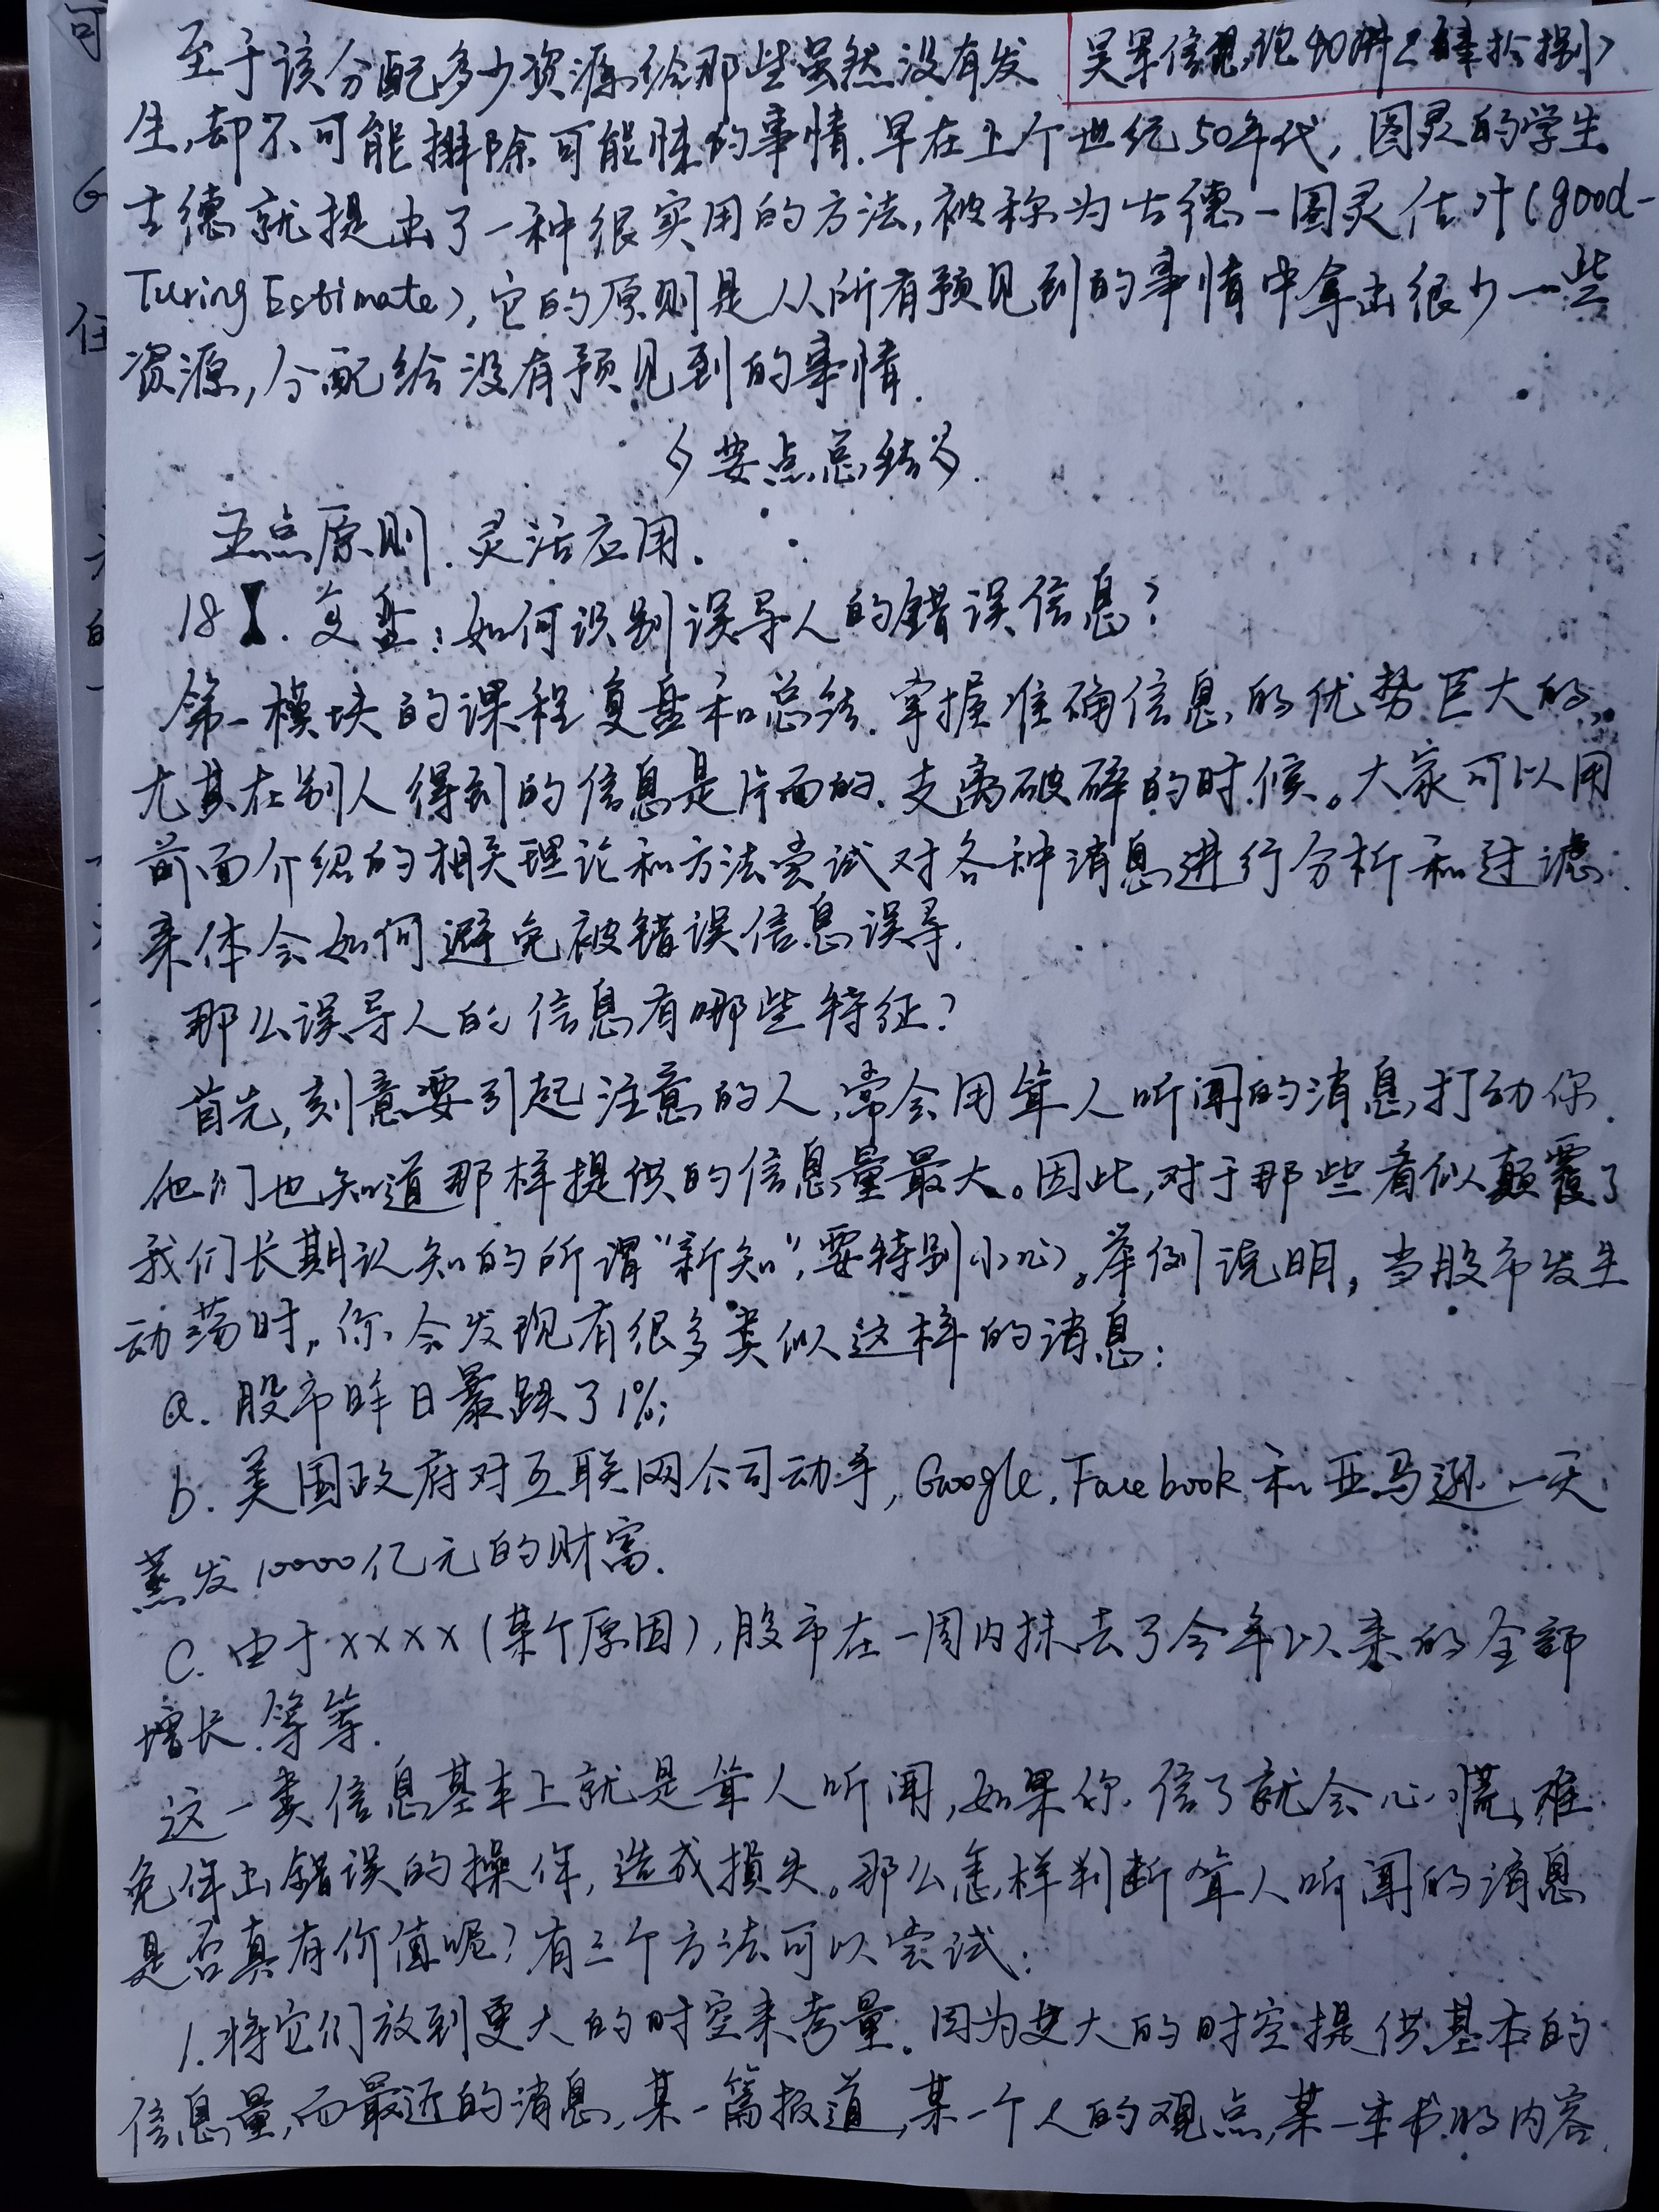 至于该分配多少资源给那些虽然没有发
吴军信息论40讲
生,却不可能排除可能性的事情.早在上个世纪50年代,图灵的学生
古德就提出了一种很实用的方法,被称为古德-图灵估计(good-
Turing Estimate),它的原则是从所有预见到的事情中拿出很少一些
资源,分配给没有预见到的事情.
要点总结
五点原则.灵活应用.
18 .复盘:如何识别误导人的错误信息?
第一模块的课程复盘和总结.掌握准确信息的优势巨大的,
尤其在别人得到的信息是片面的.支离破碎的时候。大家可以用
前面介绍的相关理论和方法尝试对各种消息进行分析和过滤.
来体会如何避免被错误信息误导.
那么误导人的信息有哪些特征?
首先,刻意要引起注意的人,常会用耸人听闻的消息打动你.
他们也知道那样提供的信息量最大。因此,对于那些看似颠覆了
我们长期认知的所谓“新知”,要特别小心。举例说明,当股市发生
动荡时,你会发现有很多类似这样的消息:
a.股市昨日暴跌了1%;
b.美国政府对互联网公司动手,Google,Facebook和亚马逊一天
蒸发10000亿元的财富.
c.由于xxxx(某个原因),股市在一周内抹去了今年以来的全部
增长.等等.
这一类信息基本上就是耸人听闻,如果你信了就会心慌,难
免作出错误的操作,造成损失。那么怎样判断耸人听闻的消息
是否真有价值呢?有三个方法可以尝试:
1.将它们放到更大的时空来考量.因为更大的时空提供基本的
信息量,而最近的消息,某一篇报道,某一个人的观点,某一本书的内容.